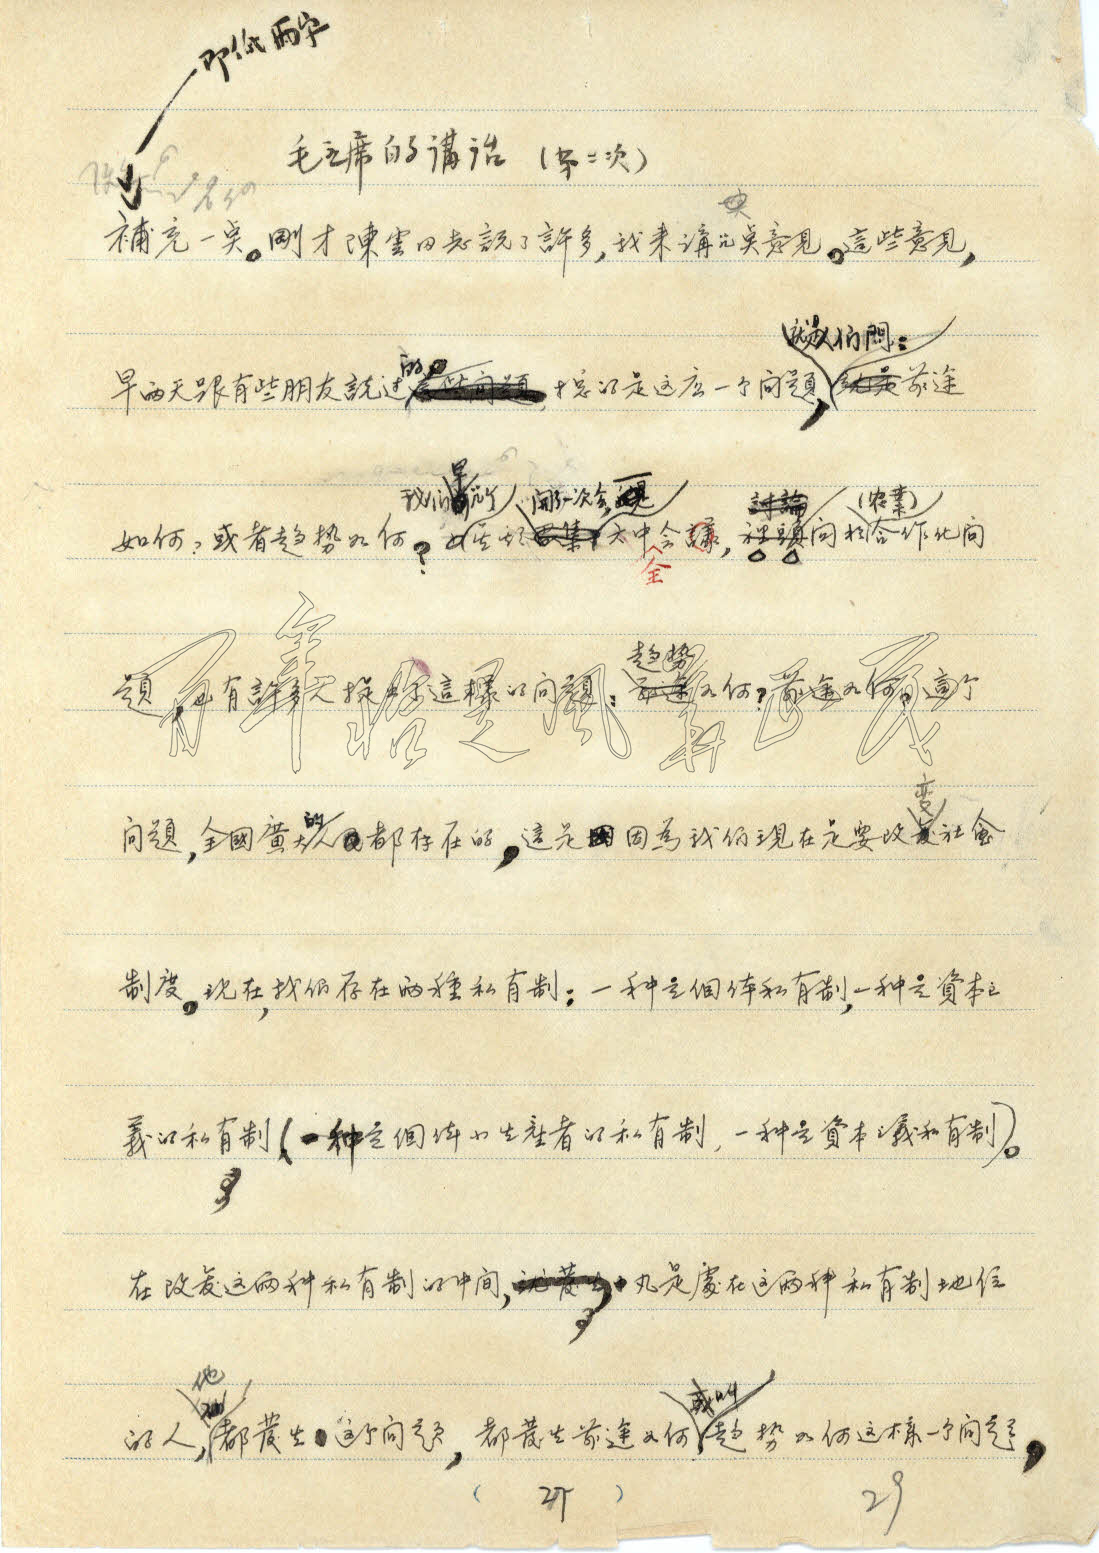 即低两字
毛主席的講話（第二次）
補充一点。剛才陳雲同志説了許多，我来講几点意見。這些意見，
就是人們問：
早两天跟有些朋友説过的，总的是这么一个问題，就是前途
我们
開了一次会
討論
（农業）
如何？或者趋势如何？大中会議，裡頭问於合作化问
全
趋势
題，也有許多人提出了這樣的问題：如何？前途如何？這个
百年 風華
变
问題，全國廣大的人都存在的，這是因為我们現在是要改变社会
制度。现在，我们存在两種私有制：一种是個体私有制，一种是資本主
義的私有制（一种是個体小生產者的私有制，一种是資本主義私有制）。
在改变这两种私有制的中间，凡是處在这两种私有制地位
他们
或叫
的人，都發生这个问題，都發生前途如何，趋势如何这樣一个问題，
（25）
29